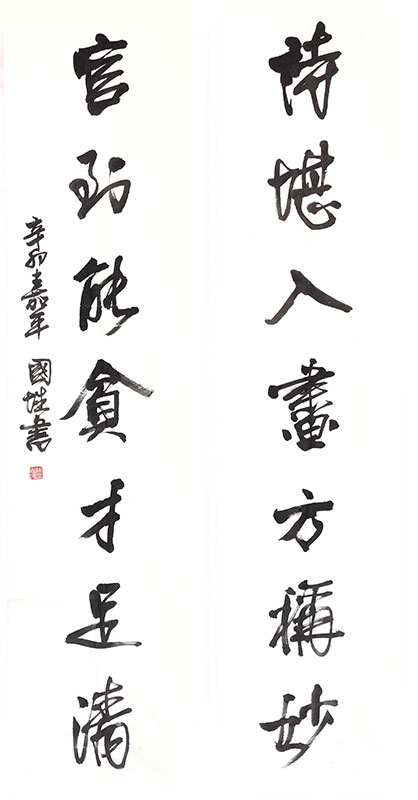 詩堪入畫方稱妙
官到能貧才足清
辛卯嘉平 國 書